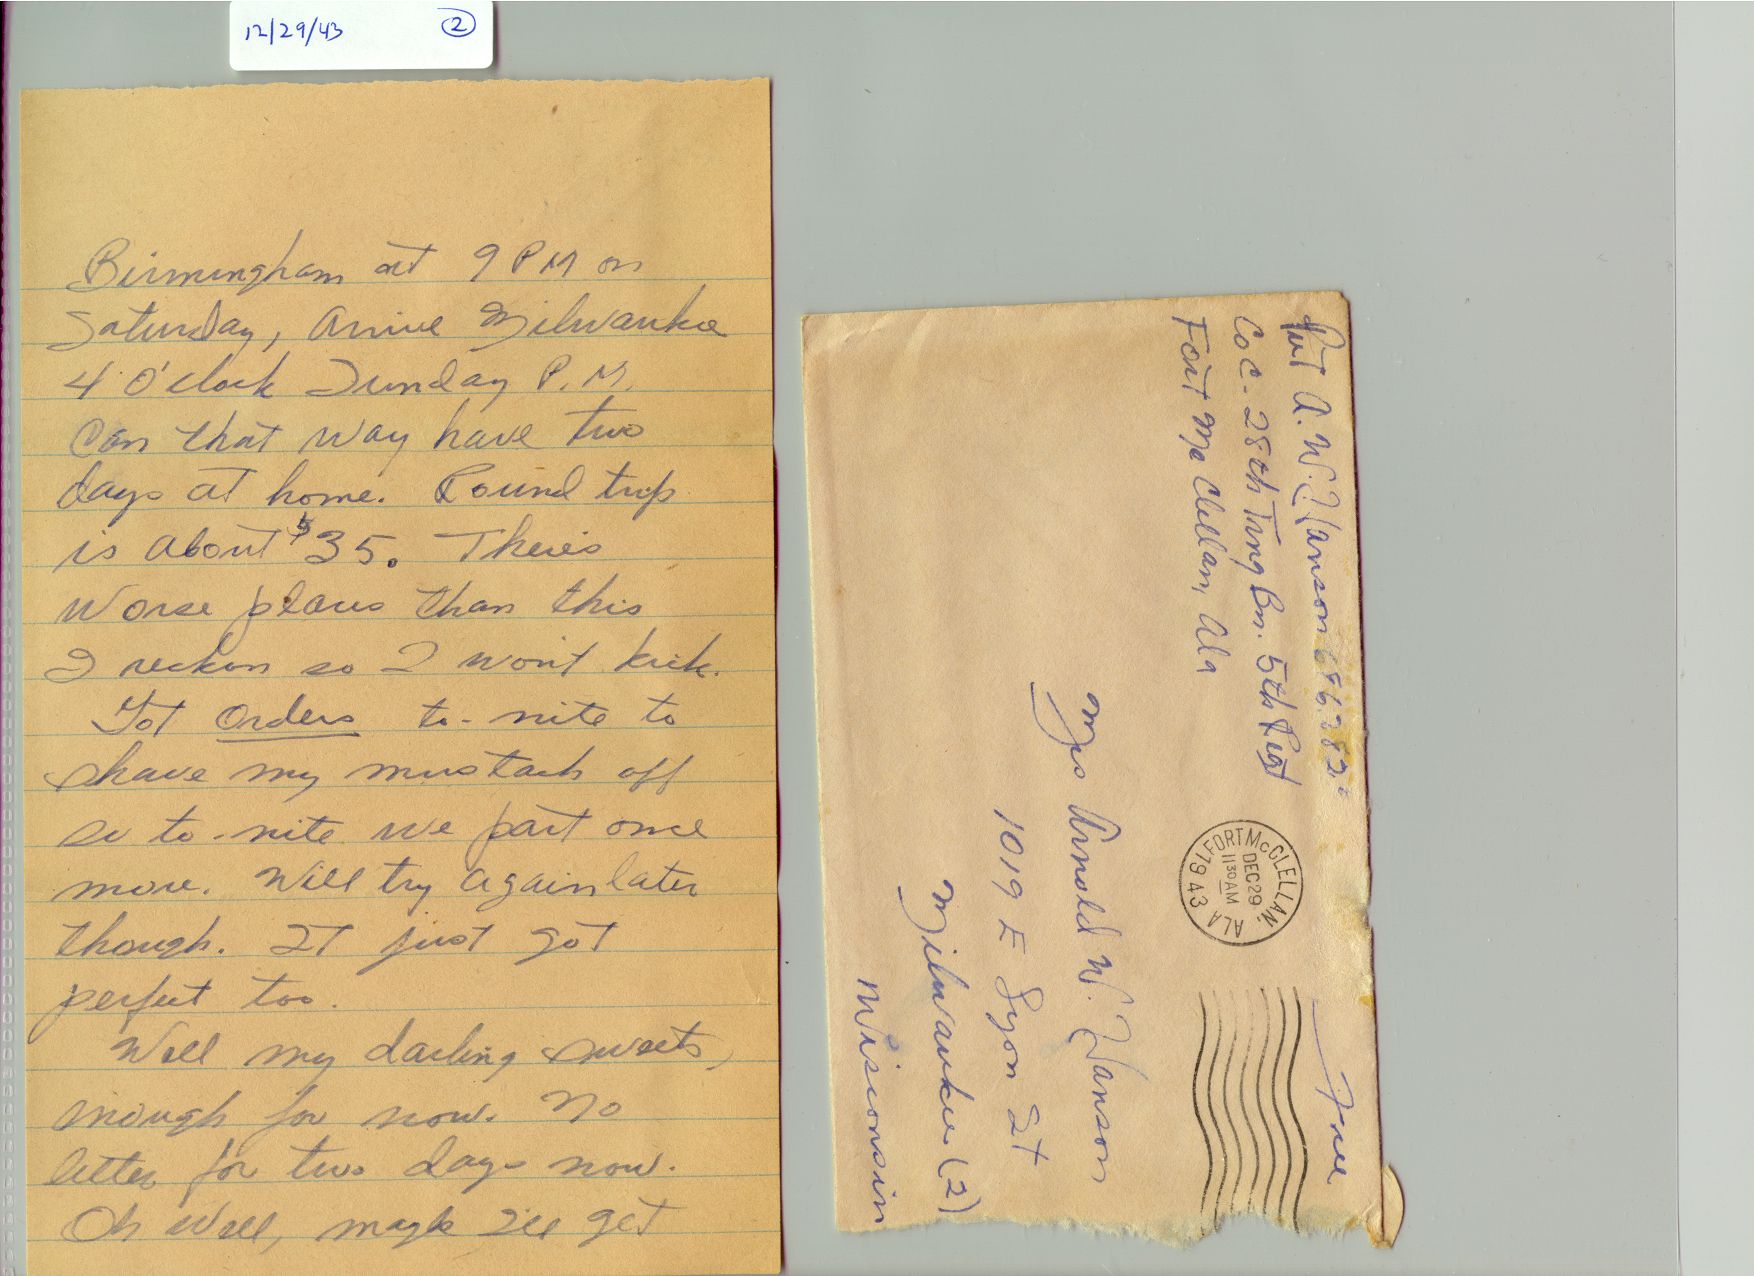 12/29/43 2
Birmingham at 9 PM on
Saturday, Arrive Milwaukee
4 O'clock Sunday P.M.
Can that way have two
days at home. Round trip
is about $35. There's
Worse places than this
I reckon so I won't kick.
Got Orders to-nite to
shave my mustach off
so to-nite we part once
more. Will try again later
though. It just got
perfect too.
Well my darling sweets,
enough for now. No
letter for two days now.
Oh Well, maybe I'll get
Pvt A. W. Hanson
Co C - 28th Trng Bn. 5th Regt
Fort Mc Clellan, Ala
FORT McCLELLAN, ALA
DEC 29
11 30 AM
1943
Free
Mrs Arnold W. Hanson
1019 E Lyon St
Milwaukee (2)
Wisconsin